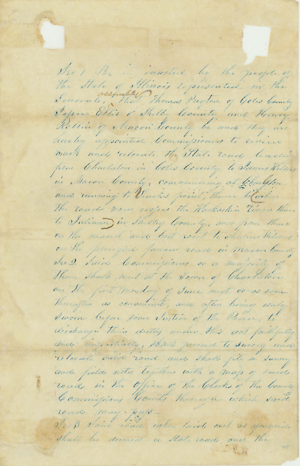 Sec 1 Be it enacted by the people of
the State of Illinois represented in the
General Assembly That Thomas Payton of Coles County
of Shelby County and Henry
of Macon County be and they are
hereby appointed Commissioners to review
mark and relocate the State road leading
from Charleston in Coles County to
in Macon County, commencing at Charleston
and running to point, thence
the roads now cross the Kaskaskia River thence
to in Shelby County, from there
on the nearest and best route to
on the present road in Macon County,
Sec 2 Said Commissioners or a majority of
them shall meet at the Town of Charleston
on the first Monday of June next or as soon
thereafter as convenient, and after being duly
sworn before some Justice of the Peace, to
discharge their duties under this act faithfully
and impartially, shall proceed to survey and
relocate said road and shall file a survey
and field notes together with a map of said
road in the office of the Clerks of the County
Commissioners Courts through which said
road may pass
Sec 3 Said road when laid out as aforesaid
shall be deemed a State road and the